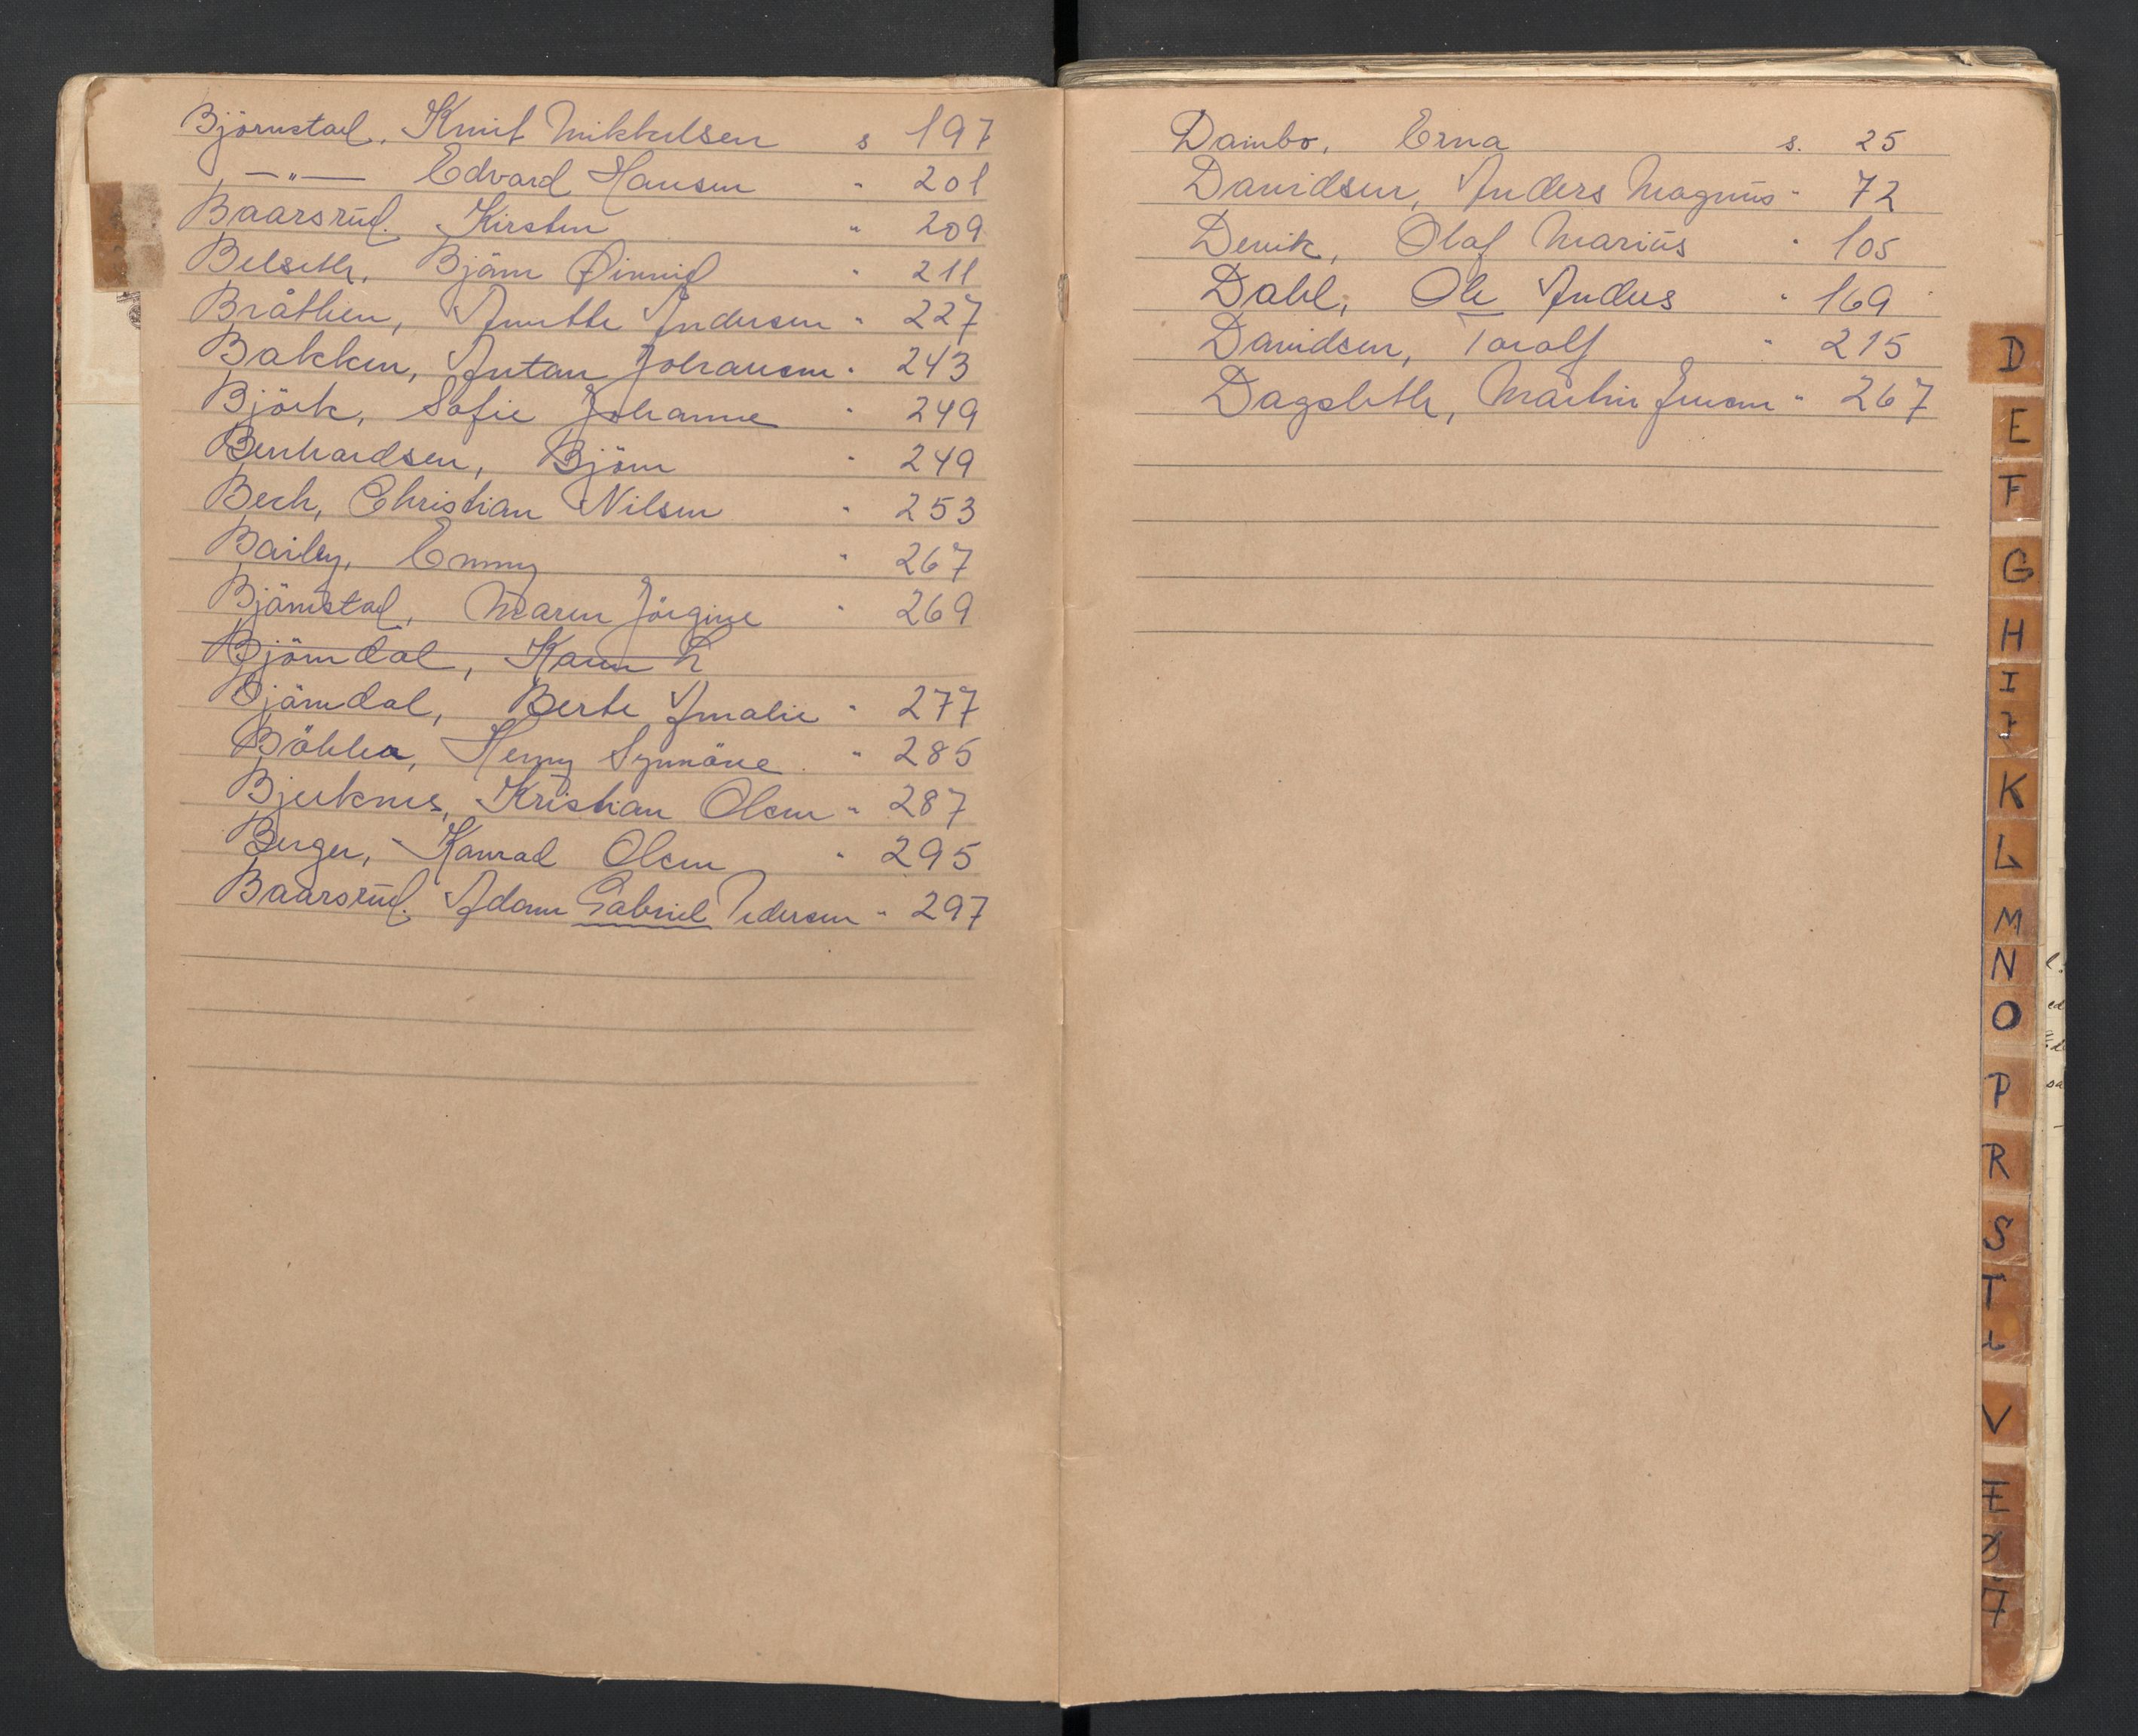 Björnstad, Knut Mikkelsen s 197
—"— Edvard Hansen " 201
Baarsrud, Kirsten " 209
Belseth, Björn Øivind " 211
Bråthen, Anette Andersen " 227
Bakken, Anton Johansen " 243
Björk, Sofie Johanne " 249
Bernhardsen, Björn " 249
Bech, Christian Nilsen " 253
Bailey, Emmy " 267
Björnstad, Maren Jörgine " 269
Björndal, Karen L
Björndal, Berte Amalie " 277
Böhler, Henny Synnöve " 285
Bjerknes, Kristian Olsen " 287
Berger, Konrad Olsen " 295
Baarsrud, Adam Gabriel Pedersen " 297
Dambo, Erna s. 25
Davidsen, Anders Magnus " 72
Devik, Olaf Marius " 105
Dahl, Ole Anders " 169
Davidsen, Toralf " 215
Dagsleth, Martin Jensen " 267
D
E
F
G
H
I
J
K
L
M
N
O
P
R
S
T
V
Æ
Ø